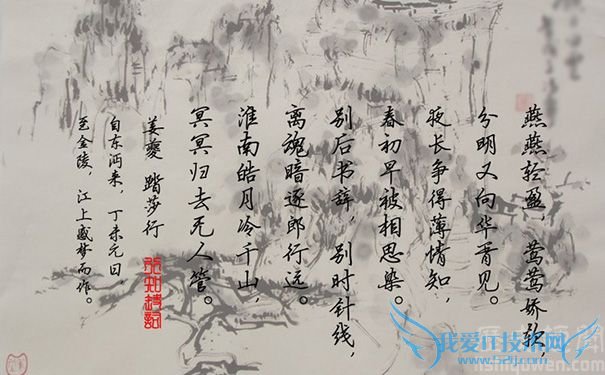 燕燕轻盈，莺莺娇软，
分明又向华胥见。
夜长争得薄情知，
春初早被相思染。
别后书辞，别时针线，
离魂暗逐郎行远。
淮南皓月冷千山，
冥冥归去无人管。
姜夔 踏莎行
自东沔来，丁未元日，
至金陵，江上感梦而作。
我爱IT技术网
www.52ij.com